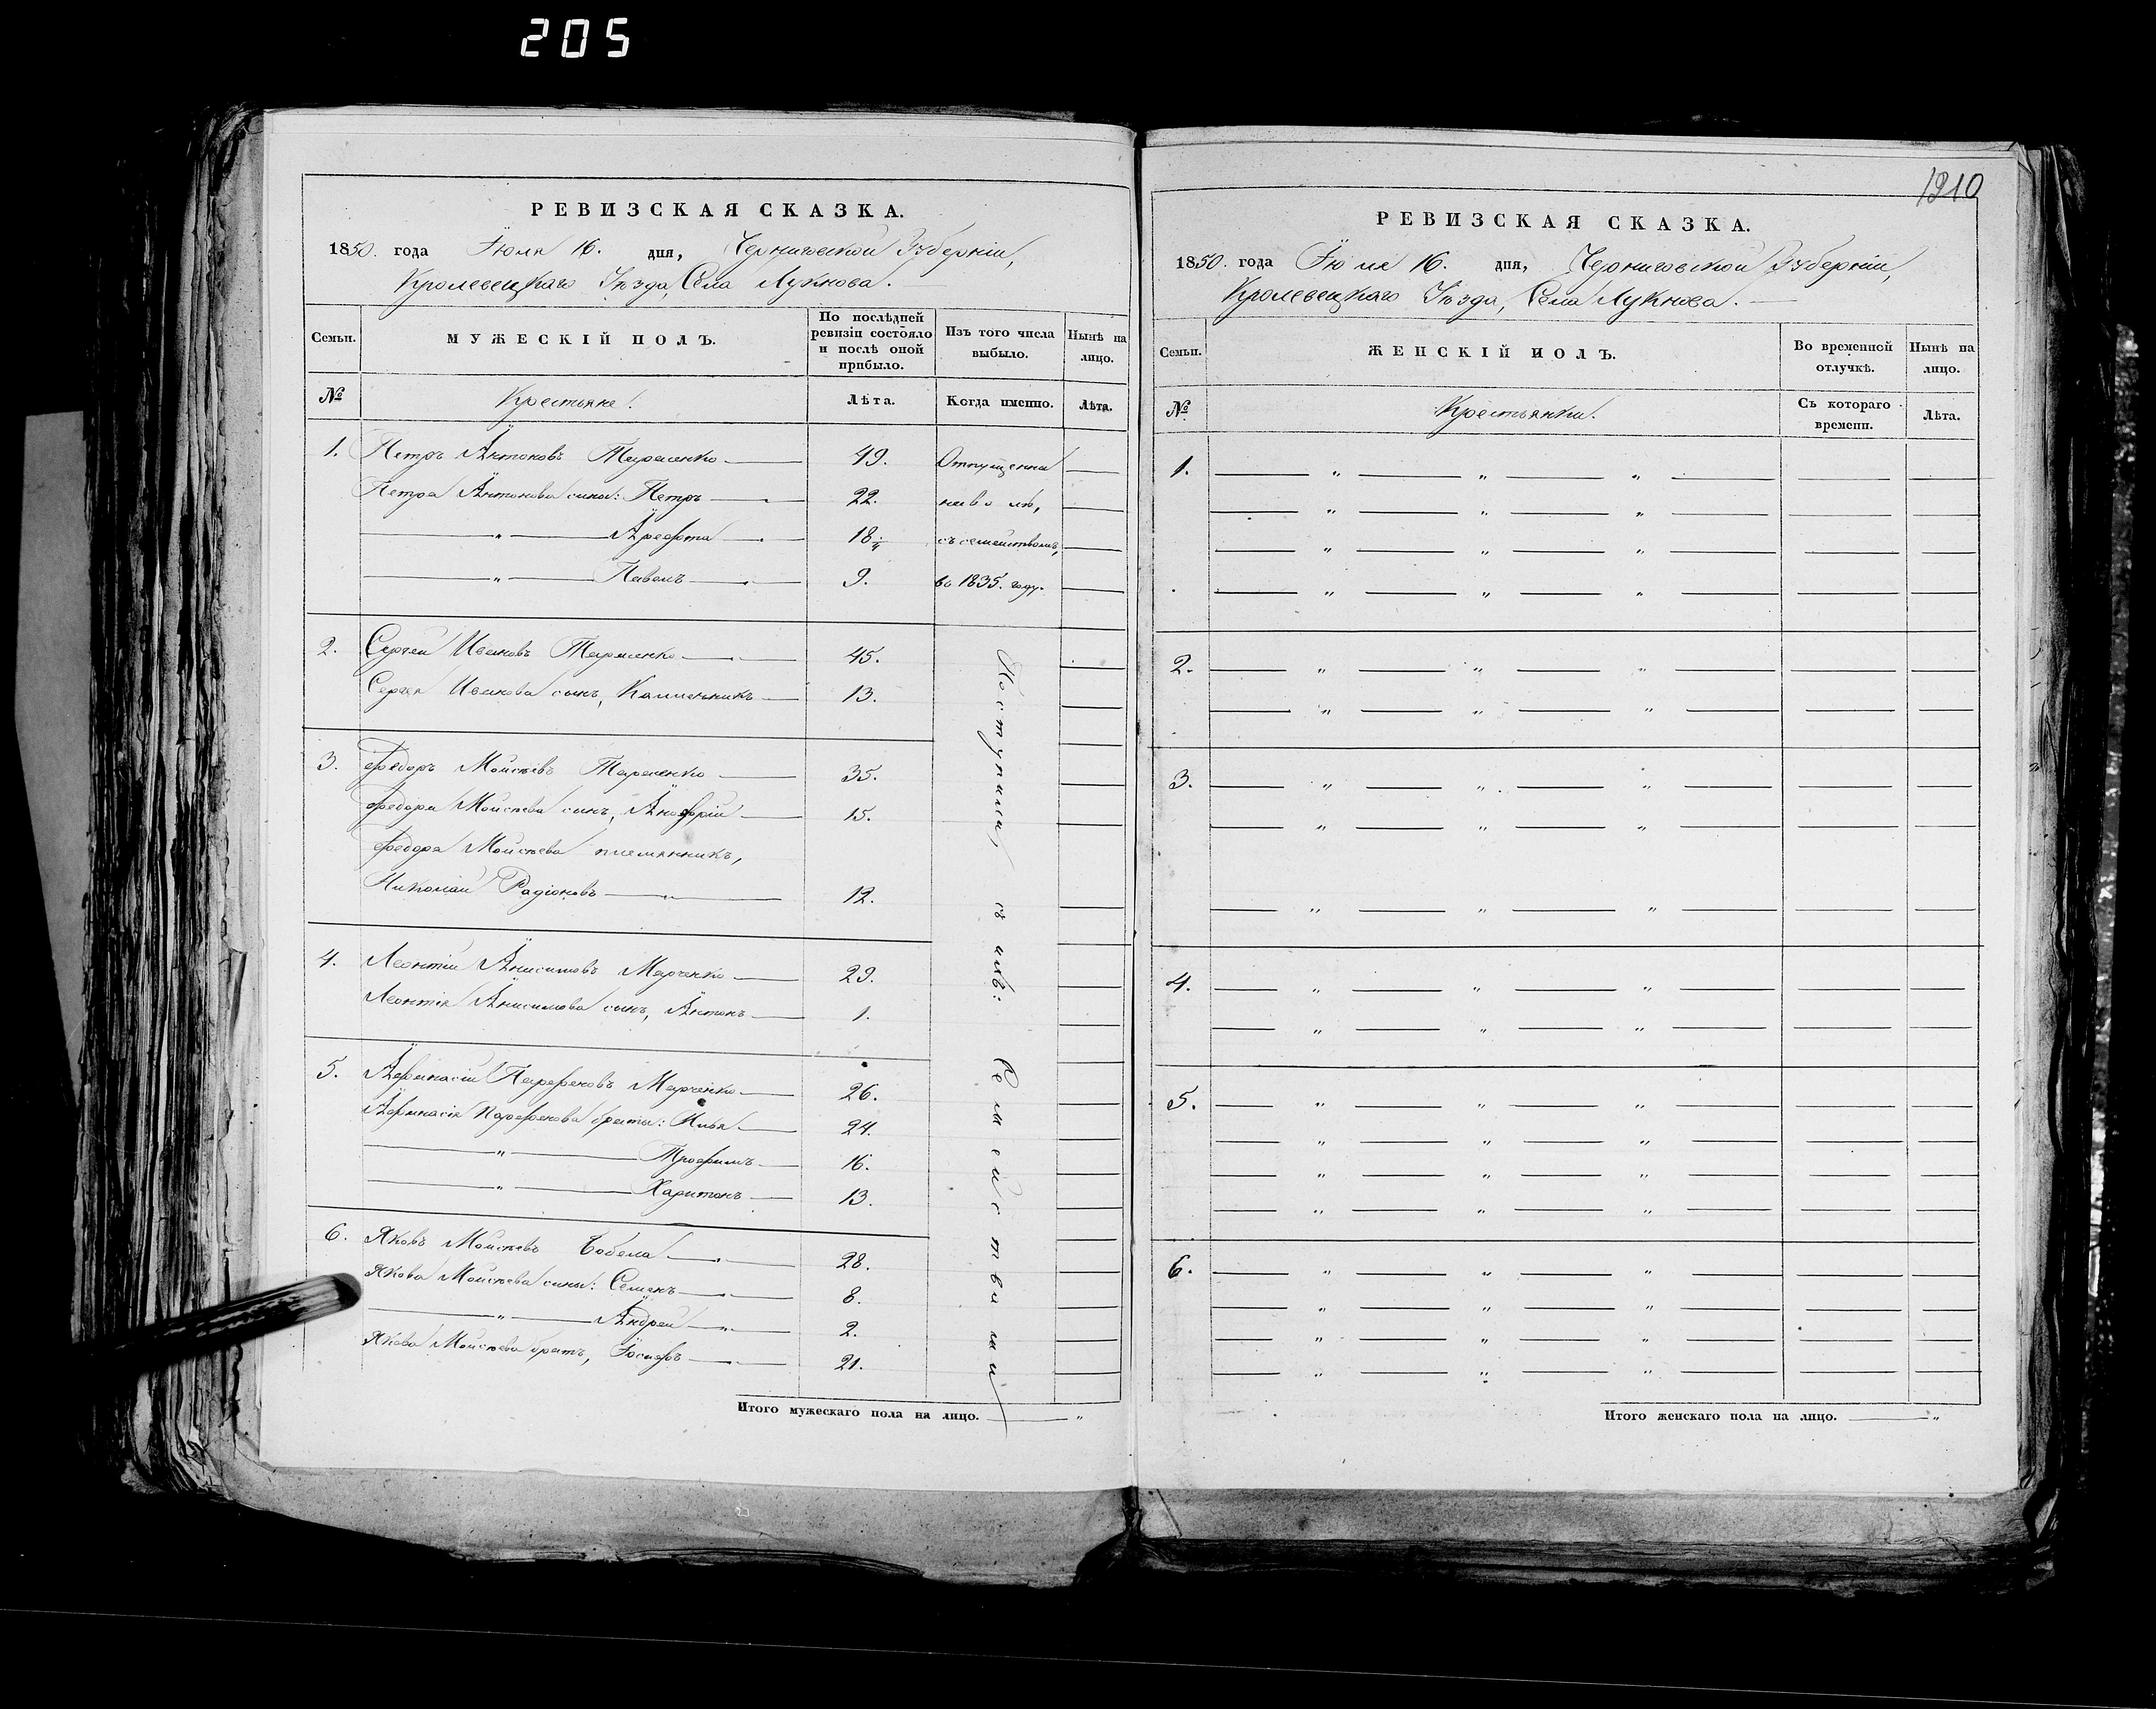 205
РЕВИЗСКАЯ СКАЗКА.
1850. года Іюля 16. дня, Черниговской Губерніи,
Кролевецкаго Уѣзда, Села Лукнова.
Семьи.
МУЖЕСКІЙ ПОЛЪ.
По послѣдней ревизіи состояло и послѣ оной прибыло.
Изъ того числа выбыло.
Нынѣ на лицо.
№
Крестьяне.
Лѣта.
Когда именно.
Лѣта.
1. Петръ Антоновъ 49. Отпущенна
Петра Антонова сыны: Петръ 22. на волю,
" Арефта 18 съ семействомъ,
" Павелъ 9. въ 1835. году.
2. Сергей Ивановъ 45.
Сергея Иванова сынъ, Калинникъ 13.
3. Федоръ Моисѣевъ 35.
Федора Моисѣева сынъ, Анофрій 15.
Федора Моисѣева племянникъ,
Николай Радіоновъ 12.
4. Леонтій Анисимовъ Марченко 29.
Леонтія Анисимова сынъ, Антонъ 1.
5. Афанасій Парфеновъ Марченко 26.
Афанасія Парфенова браты: Илья 24.
" Трофимъ 16.
" Харитонъ 13.
6. Яковъ Моисѣевъ 28.
Якова Моисѣева сыны: Семенъ 8.
" Андрей 2.
Якова Моисѣева братъ, Іосифъ 21.
Поступили съ ихъ: Семействами
Итого мужескаго пола на лицо. "
1910
РЕВИЗСКАЯ СКАЗКА.
1850. года Іюля 16. дня, Черниговской Губерніи,
Кролевецкаго Уѣзда, Села Лукнова.
Семьи.
ЖЕНСКІЙ ПОЛЪ.
Во временной отлучкѣ.
Нынѣ на лицо.
№
Крестьянки.
Съ котораго времени.
Лѣта.
1.
2.
3.
4.
5.
6.
Итого женскаго пола на лицо. "